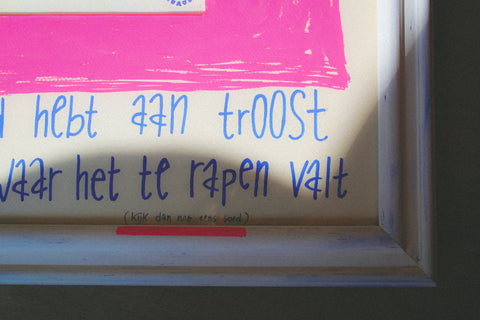 hebt aan troost
waar het te rapen valt
(kijk dan nog eens goed)